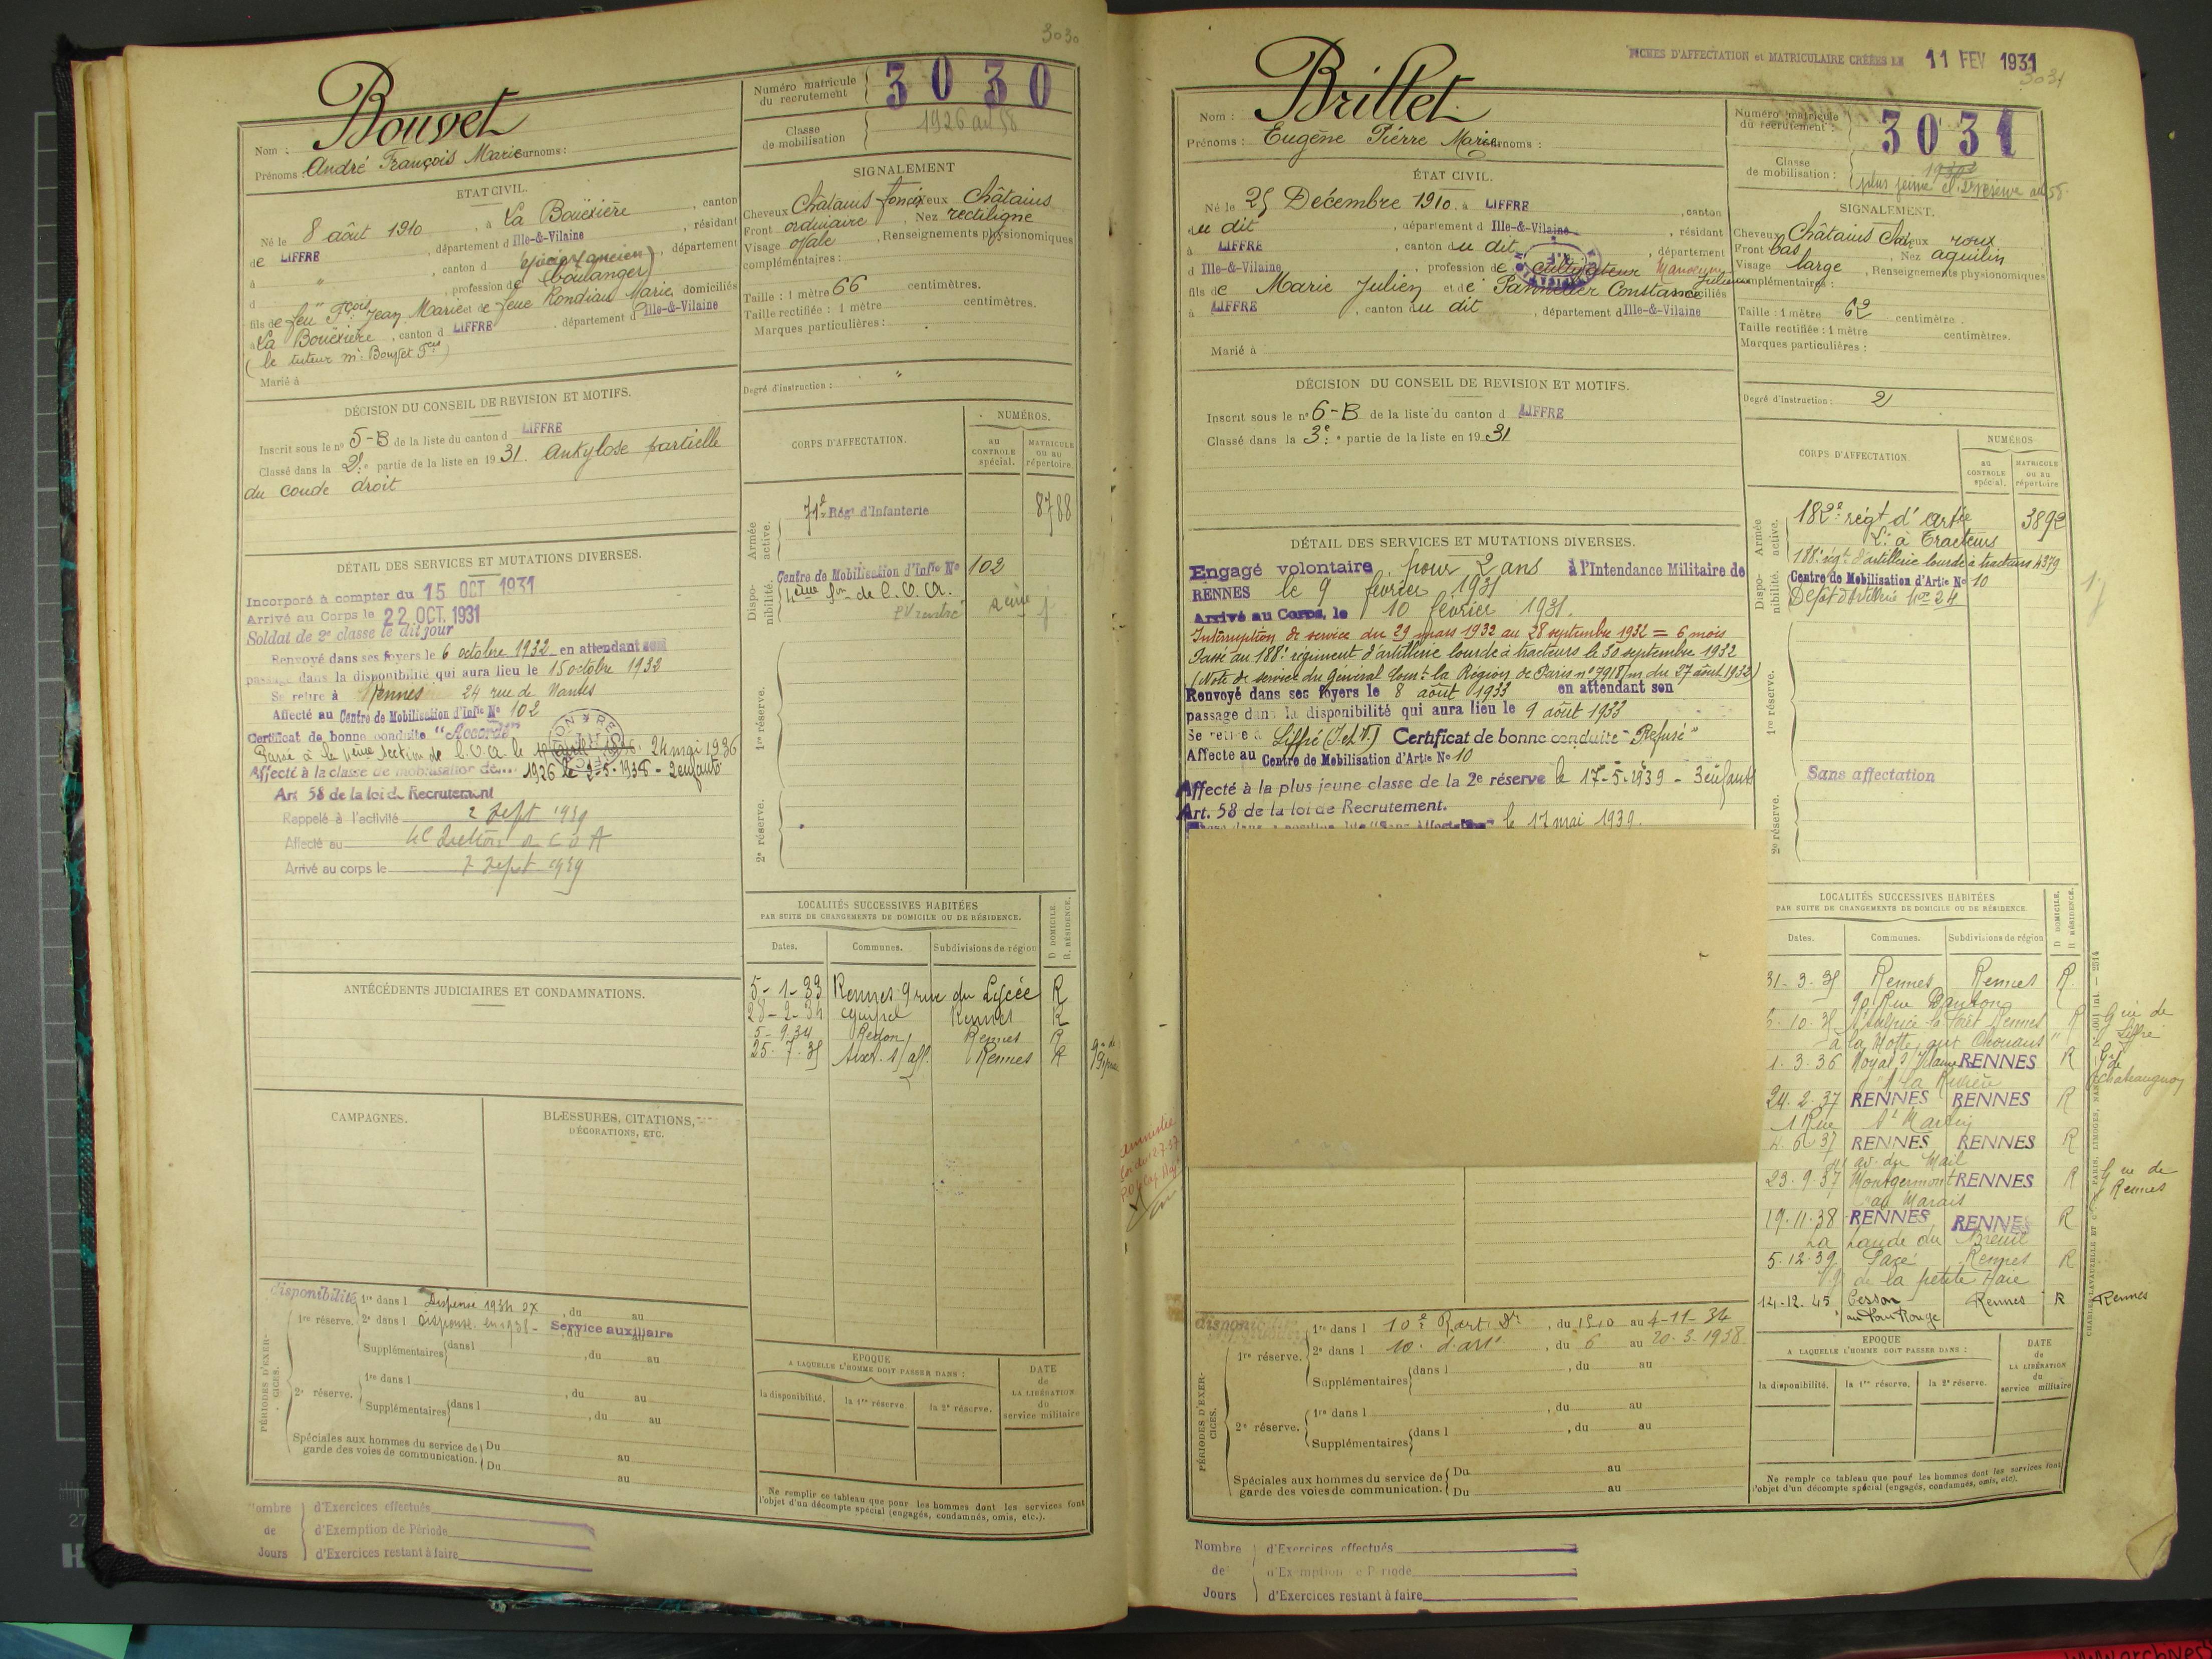 3030
Bouvet
Nom :
Prénoms : André François Marie
Surnoms :
Numéro matricule du recrutement
3030
Classe de mobilisation
1926 art 58
ETAT CIVIL.
Né le 8 août 1910, à La Bouëxière, canton
de LIFFRE, département d Ille-&-Vilaine, résidant
à " , canton d , département
d " , profession de épicier (ancien boulanger)
fils de feu Fçois Jean Marie et de feue Rondiau Marie, domiciliés
à La Bouëxière, canton d LIFFRE, département d Ille-&-Vilaine
(le tuteur Mr Bouvet Fçois)
Marié à
SIGNALEMENT
Cheveux Châtains foncés Yeux Châtains
Front ordinaire, Nez rectiligne
Visage ovale, Renseignements physionomiques
complémentaires :
Taille : 1 mètre 66 centimètres.
Taille rectifiée : 1 mètre centimètres.
Marques particulières :
Degré d'instruction : "
DÉCISION DU CONSEIL DE REVISION ET MOTIFS.
Inscrit sous le n° 5-B de la liste du canton d LIFFRE
Classé dans la 2e partie de la liste en 1931. Ankylose partielle
du coude droit
CORPS D'AFFECTATION.
NUMÉROS.
au CONTROLE spécial.
MATRICULE ou au répertoire.
Armée active.
71e Régt d'Infanterie 8788
Disponibilité.
Centre de Mobilisation d'Infie N° 102
4ème Son de C.O.A.
1re réserve.
2e réserve.
DÉTAIL DES SERVICES ET MUTATIONS DIVERSES.
Incorporé à compter du 15 OCT 1931
Arrivé au Corps le 22 OCT. 1931
Soldat de 2e classe le dit jour
Renvoyé dans ses foyers le 6 octobre 1932 en attendant son
passage dans la disponibilité qui aura lieu le 15 octobre 1932
Se retire à Rennes 24 rue de Nantes
Affecté au Centre de Mobilisation d'Infie N° 102
Certificat de bonne conduite "Accordé"
Passé à la 4ème Section de C.O.A. le 24 mai 1936
Affecté à la classe de mobilisation de... 1926 le 2-5-1938 - 2 enfants
Art 58 de la loi de Recrutement
Rappelé à l'activité 2 Sept 1939
Affecté au 4e Section de C O A
Arrivé au corps le 7 Sept 1939
ANTÉCÉDENTS JUDICIAIRES ET CONDAMNATIONS.
CAMPAGNES.
BLESSURES, CITATIONS,
DÉCORATIONS, ETC.
LOCALITÉS SUCCESSIVES HABITÉES
PAR SUITE DE CHANGEMENTS DE DOMICILE OU DE RÉSIDENCE.
Dates. Communes. Subdivisions de région D DOMICILE. R. RÉSIDENCE.
5-1-33 Rennes 9 rue du Lycée R
28-2-34 Rennes R
5-9-34 Redon Rennes R
25-7-35 Rennes R
PÉRIODES D'EXERCICES.
disponibilité
1re réserve.
1re dans l Dispense 1934 , du au
2e dans l dispense en 1938 - Service auxiliaire
Supplémentaires dans l , du au
2e réserve.
1re dans l , du au
Supplémentaires dans l , du au
Spéciales aux hommes du service de garde des voies de communication.
Du au
Du au
EPOQUE
A LAQUELLE L'HOMME DOIT PASSER DANS :
la disponibilité. la 1re réserve. la 2e réserve.
DATE de LA LIBÉRATION du service militaire
Ne remplir ce tableau que pour les hommes dont les services font
l'objet d'un décompte spécial (engagés, condamnés, omis, etc.).
Nombre de Jours
d'Exercices effectués
d'Exemption de Période
d'Exercices restant à faire
FICHES D'AFFECTATION et MATRICULAIRE CRÉÉES LE 11 FEV 1931
3031
Brillet
Nom :
Prénoms : Eugène Pierre Marie
Surnoms :
Numéro matricule du recrutement :
3031
Classe de mobilisation :
plus jeune Cl. 2e réserve art 58.
ÉTAT CIVIL.
Né le 25 Décembre 1910, à LIFFRE, canton
du dit, département d Ille-&-Vilaine, résidant
à LIFFRE, canton du dit, département
d Ille-&-Vilaine, profession de cultivateur Manoeuvre
fils de Marie Julien et de Pannetier Constance Julienne domiciliés
à LIFFRE, canton du dit, département d Ille-&-Vilaine
Marié à
SIGNALEMENT.
Cheveux Châtains clair Yeux roux
Front bas, Nez aquilin
Visage large, Renseignements physionomiques
complémentaires :
Taille : 1 mètre 62 centimètre.
Taille rectifiée : 1 mètre centimètres.
Marques particulières :
Degré d'instruction : 2
DÉCISION DU CONSEIL DE REVISION ET MOTIFS.
Inscrit sous le n° 6-B de la liste du canton d LIFFRE
Classé dans la 3e partie de la liste en 1931
CORPS D'AFFECTATION
NUMÉROS
au CONTROLE spécial.
MATRICULE ou au répertoire
Armée active.
182e régt d'artie Lde à Tracteurs 3892
188e régt d'artillerie lourde à tracteurs 4379
Disponibilité.
Centre de Mobilisation d'Artie N° 10
Dépôt d'Artillerie No 24
1re réserve.
Sans affectation
2e réserve.
DÉTAIL DES SERVICES ET MUTATIONS DIVERSES.
Engagé volontaire pour 2 ans à l'Intendance Militaire de
RENNES le 9 février 1931
Arrivé au Corps, le 10 février 1931.
Interruption de service du 29 mars 1932 au 28 septembre 1932 = 6 mois
Passé au 188e régiment d'artillerie lourde à tracteurs le 30 septembre 1932
(Note de service du Général Comt la Région de Paris n° 7918/m du 27 août 1932)
Renvoyé dans ses foyers le 8 août 1933 en attendant son
passage dans la disponibilité qui aura lieu le 9 août 1933
Se retire à Liffré (I.et V.) Certificat de bonne conduite "Refusé"
Affecté au Centre de Mobilisation d'Artie N° 10
Affecté à la plus jeune classe de la 2e réserve le 17-5-1939 - 3 enfants
Art. 58 de la loi de Recrutement.
"Sans Affectation" le 17 mai 1939.
LOCALITÉS SUCCESSIVES HABITÉES
PAR SUITE DE CHANGEMENTS DE DOMICILE OU DE RÉSIDENCE.
Dates. Communes. Subdivisions de région D DOMICILE. R RÉSIDENCE.
31-3-35 Rennes Rennes R.
90 Rue Danton
3-10-35 St Sulpice la Forêt Rennes R Gie de Liffré
à la Motte aux Chouans
1-3-36 Noyal s/ Vilaine RENNES R Gie de Chateaugiron
à la Rivière
24-2-37 RENNES RENNES R
1 Rue St Martin
4-6-37 RENNES RENNES R
av. du Mail
23-9-37 Montgermont RENNES R Gie de Rennes
au Marais
19-11-38 RENNES RENNES R
La Lande du Breuil
5-12-39 Pacé Rennes R
de la petite Haie
14-12-45 Cesson Rennes R Rennes
au Pou Rouge
PÉRIODES D'EXERCICES.
disponibilité
1re réserve.
1re dans l 10e R. art. Dre, du 15-10 au 4-11-34
2e dans l 10e d'art, du 6 au 20-3-1938
Supplémentaires dans l , du au
2e réserve.
1re dans l , du au
Supplémentaires dans l , du au
Spéciales aux hommes du service de garde des voies de communication.
Du au
Du au
EPOQUE
A LAQUELLE L'HOMME DOIT PASSER DANS :
la disponibilité. la 1re réserve. la 2e réserve.
DATE de LA LIBÉRATION du service militaire
Ne remplir ce tableau que pour les hommes dont les services font
l'objet d'un décompte spécial (engagés, condamnés, omis, etc).
Nombre de Jours
d'Exercices effectués
d'Exemption de Période
d'Exercices restant à faire